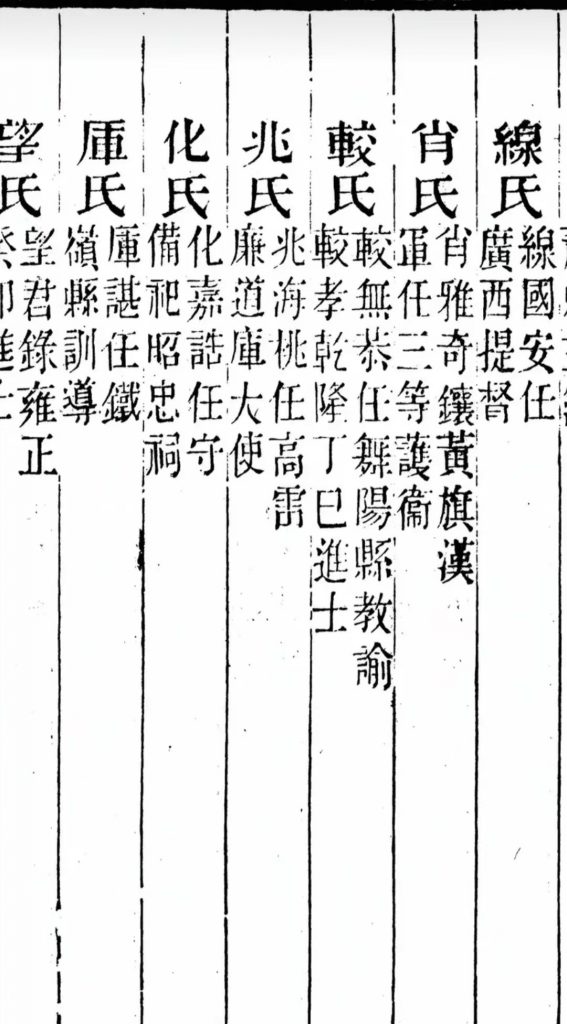 線氏
線國安任
廣西提督
肖氏
肖雅奇鑲黃旗漢
軍任三等護衞
較氏
較無恭任舞陽縣教諭
較孝乾隆丁巳進士
兆氏
兆海桃任高雷
廉道庫大使
化氏
化嘉誥任守
備祀昭忠祠
厙氏
厙諶任鐵
嶺縣訓導
望氏
望君錄雍正
癸卯進士